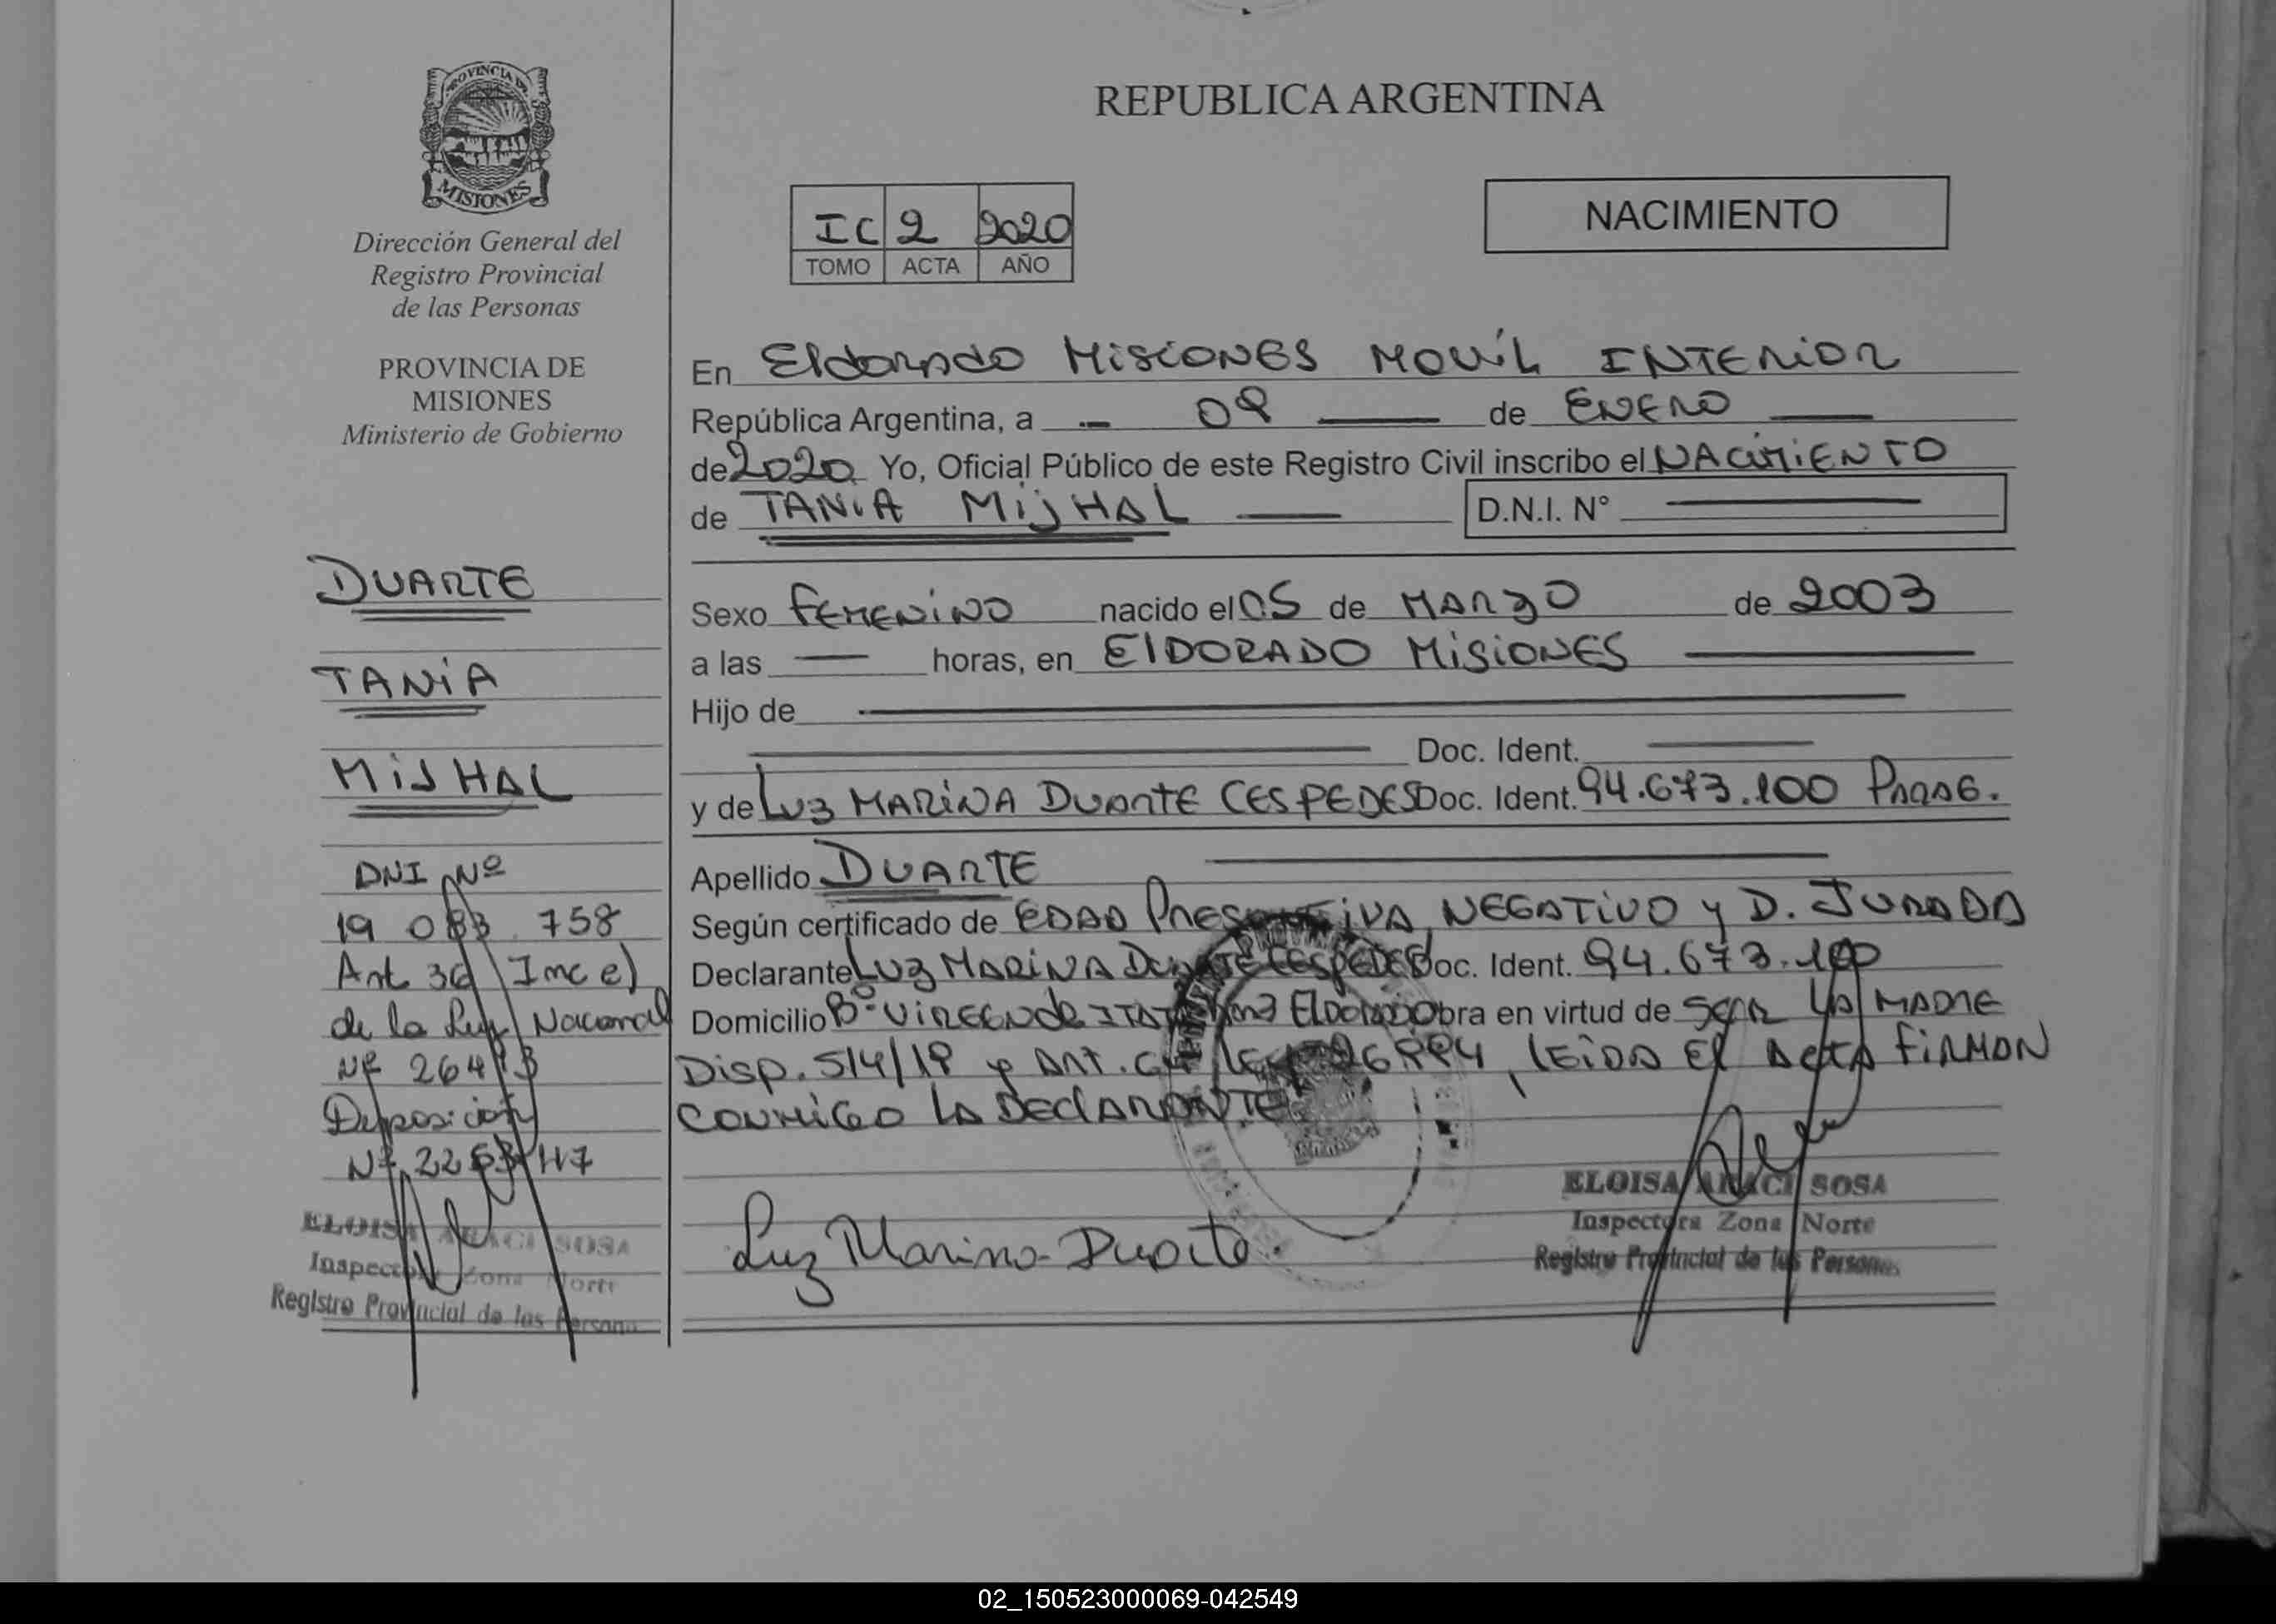 PROVINCIA DE
MISIONES
Dirección General del
Registro Provincial
de las Personas
PROVINCIA DE
MISIONES
Ministerio de Gobierno
DUARTE
TANIA
MIJHAL
DNI Nº
19 083 758
Art 36 Inc e)
de la Ley Nacional
Nº 26413
Disposición
Nº
ELOISA ARACI SOSA
Inspectora Zona Norte
Registro Provincial de las Personas
REPUBLICA ARGENTINA
NACIMIENTO
IC 2 2020
TOMO ACTA AÑO
En Eldorado Misiones Movil Interior
República Argentina, a - 09 — de ENERO —
de 2020 Yo, Oficial Público de este Registro Civil inscribo el NACIMIENTO
de TANIA MIJHAL — D.N.I. Nº —
Sexo Femenino nacido el 05 de MARZO de 2003
a las — horas, en ElDORADO MISIONES —
Hijo de —
— Doc. Ident. —
y de Luz MARINA DUARTE CESPEDES Doc. Ident. 94.673.100 PARAG.
Apellido DUARTE —
Según certificado de EDAD PRESUNTIVA, NEGATIVO y D. JURADA
Declarante Luz MARINA DUARTE CESPEDES Doc. Ident. 94.673.100
Domicilio Bº VIRGEN de ITATI Eldorado Obra en virtud de SER LA MADRE
Disp. 514/19 y ART. Ley 26994, LEIDA El ACTA FIRMAN
CONMIGO LA DEClARANTE
Luz Marina Duarte.
ELOISA ARACI SOSA
Inspectora Zona Norte
Registro Provincial de las Personas
02_150523000069-042549